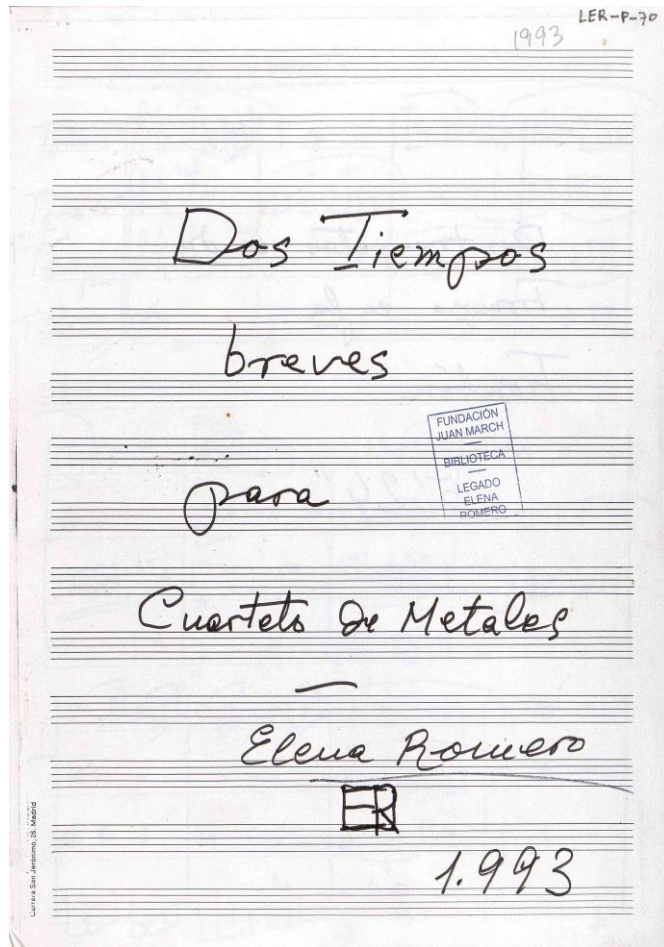 LER-P-70
1993
Dos Tiempos
breves
FUNDACIÓN
JUAN MARCH
BIBLIOTECA
LEGADO
ELENA
ROMERO
para
Cuarteto de Metales
Elena Romero
ER
1.993
Carrera San Jerónimo, 26. Madrid